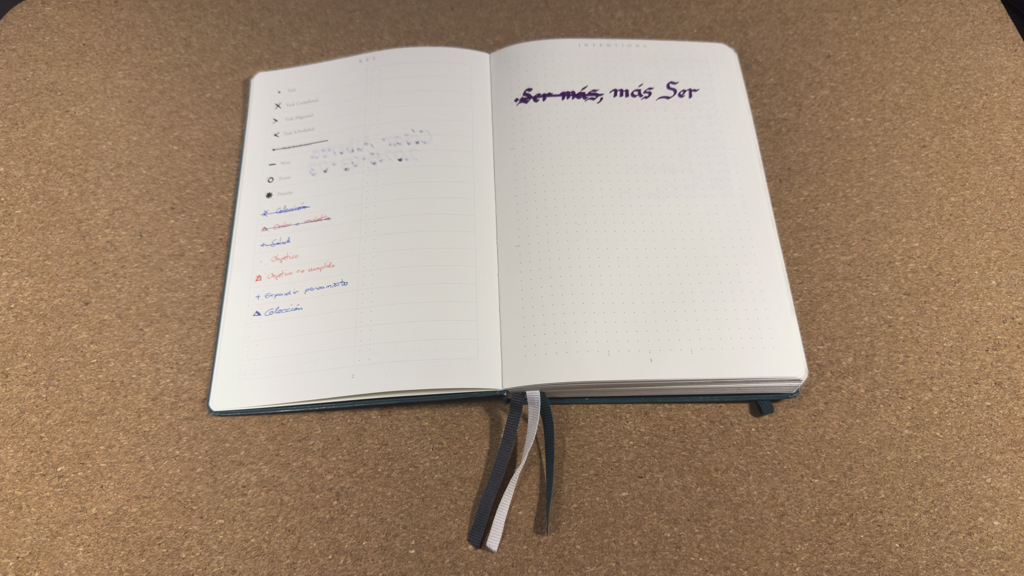 KEY
Task
Task Completed
Task Migrated
Task Scheduled
Note
Event
Priority
Colección
Salud
Objetivo
Objetivo no cumplido
Expandir pensamientos
Colección
INTENTIONS
Ser más, más Ser
2